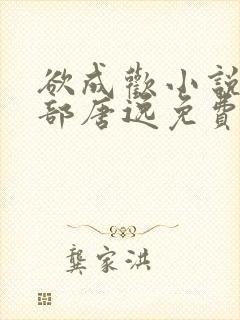 欲成歡小說
部唐逸免費
龔家洪